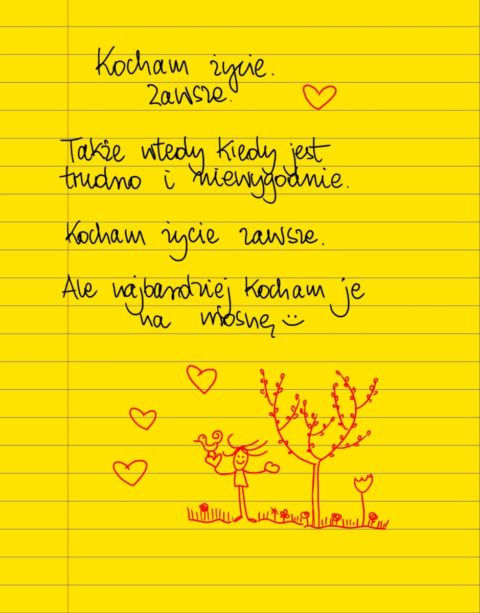 Kocham życie.
Zawsze.
Także wtedy kiedy jest
trudno i niewygodnie.
Kocham życie zawsze.
Ale najbardziej kocham je
na wiosnę